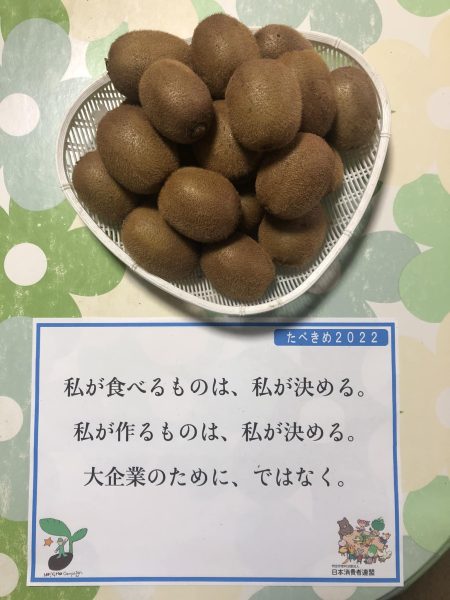 たべきめ2022
私が食べるものは、私が決める。
私が作るものは、私が決める。
大企業のために、ではなく。
日本消費者連盟